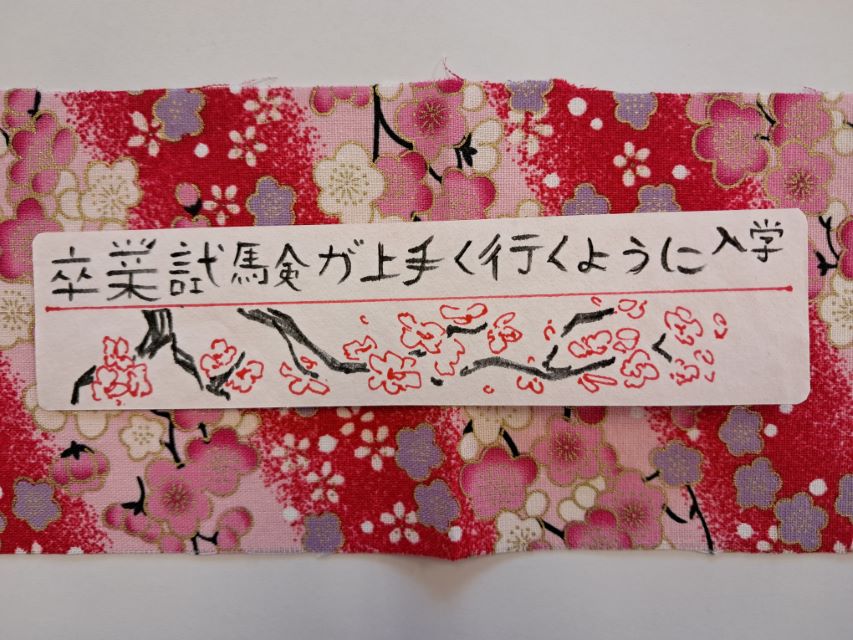 卒業試験が上手く行くように入学